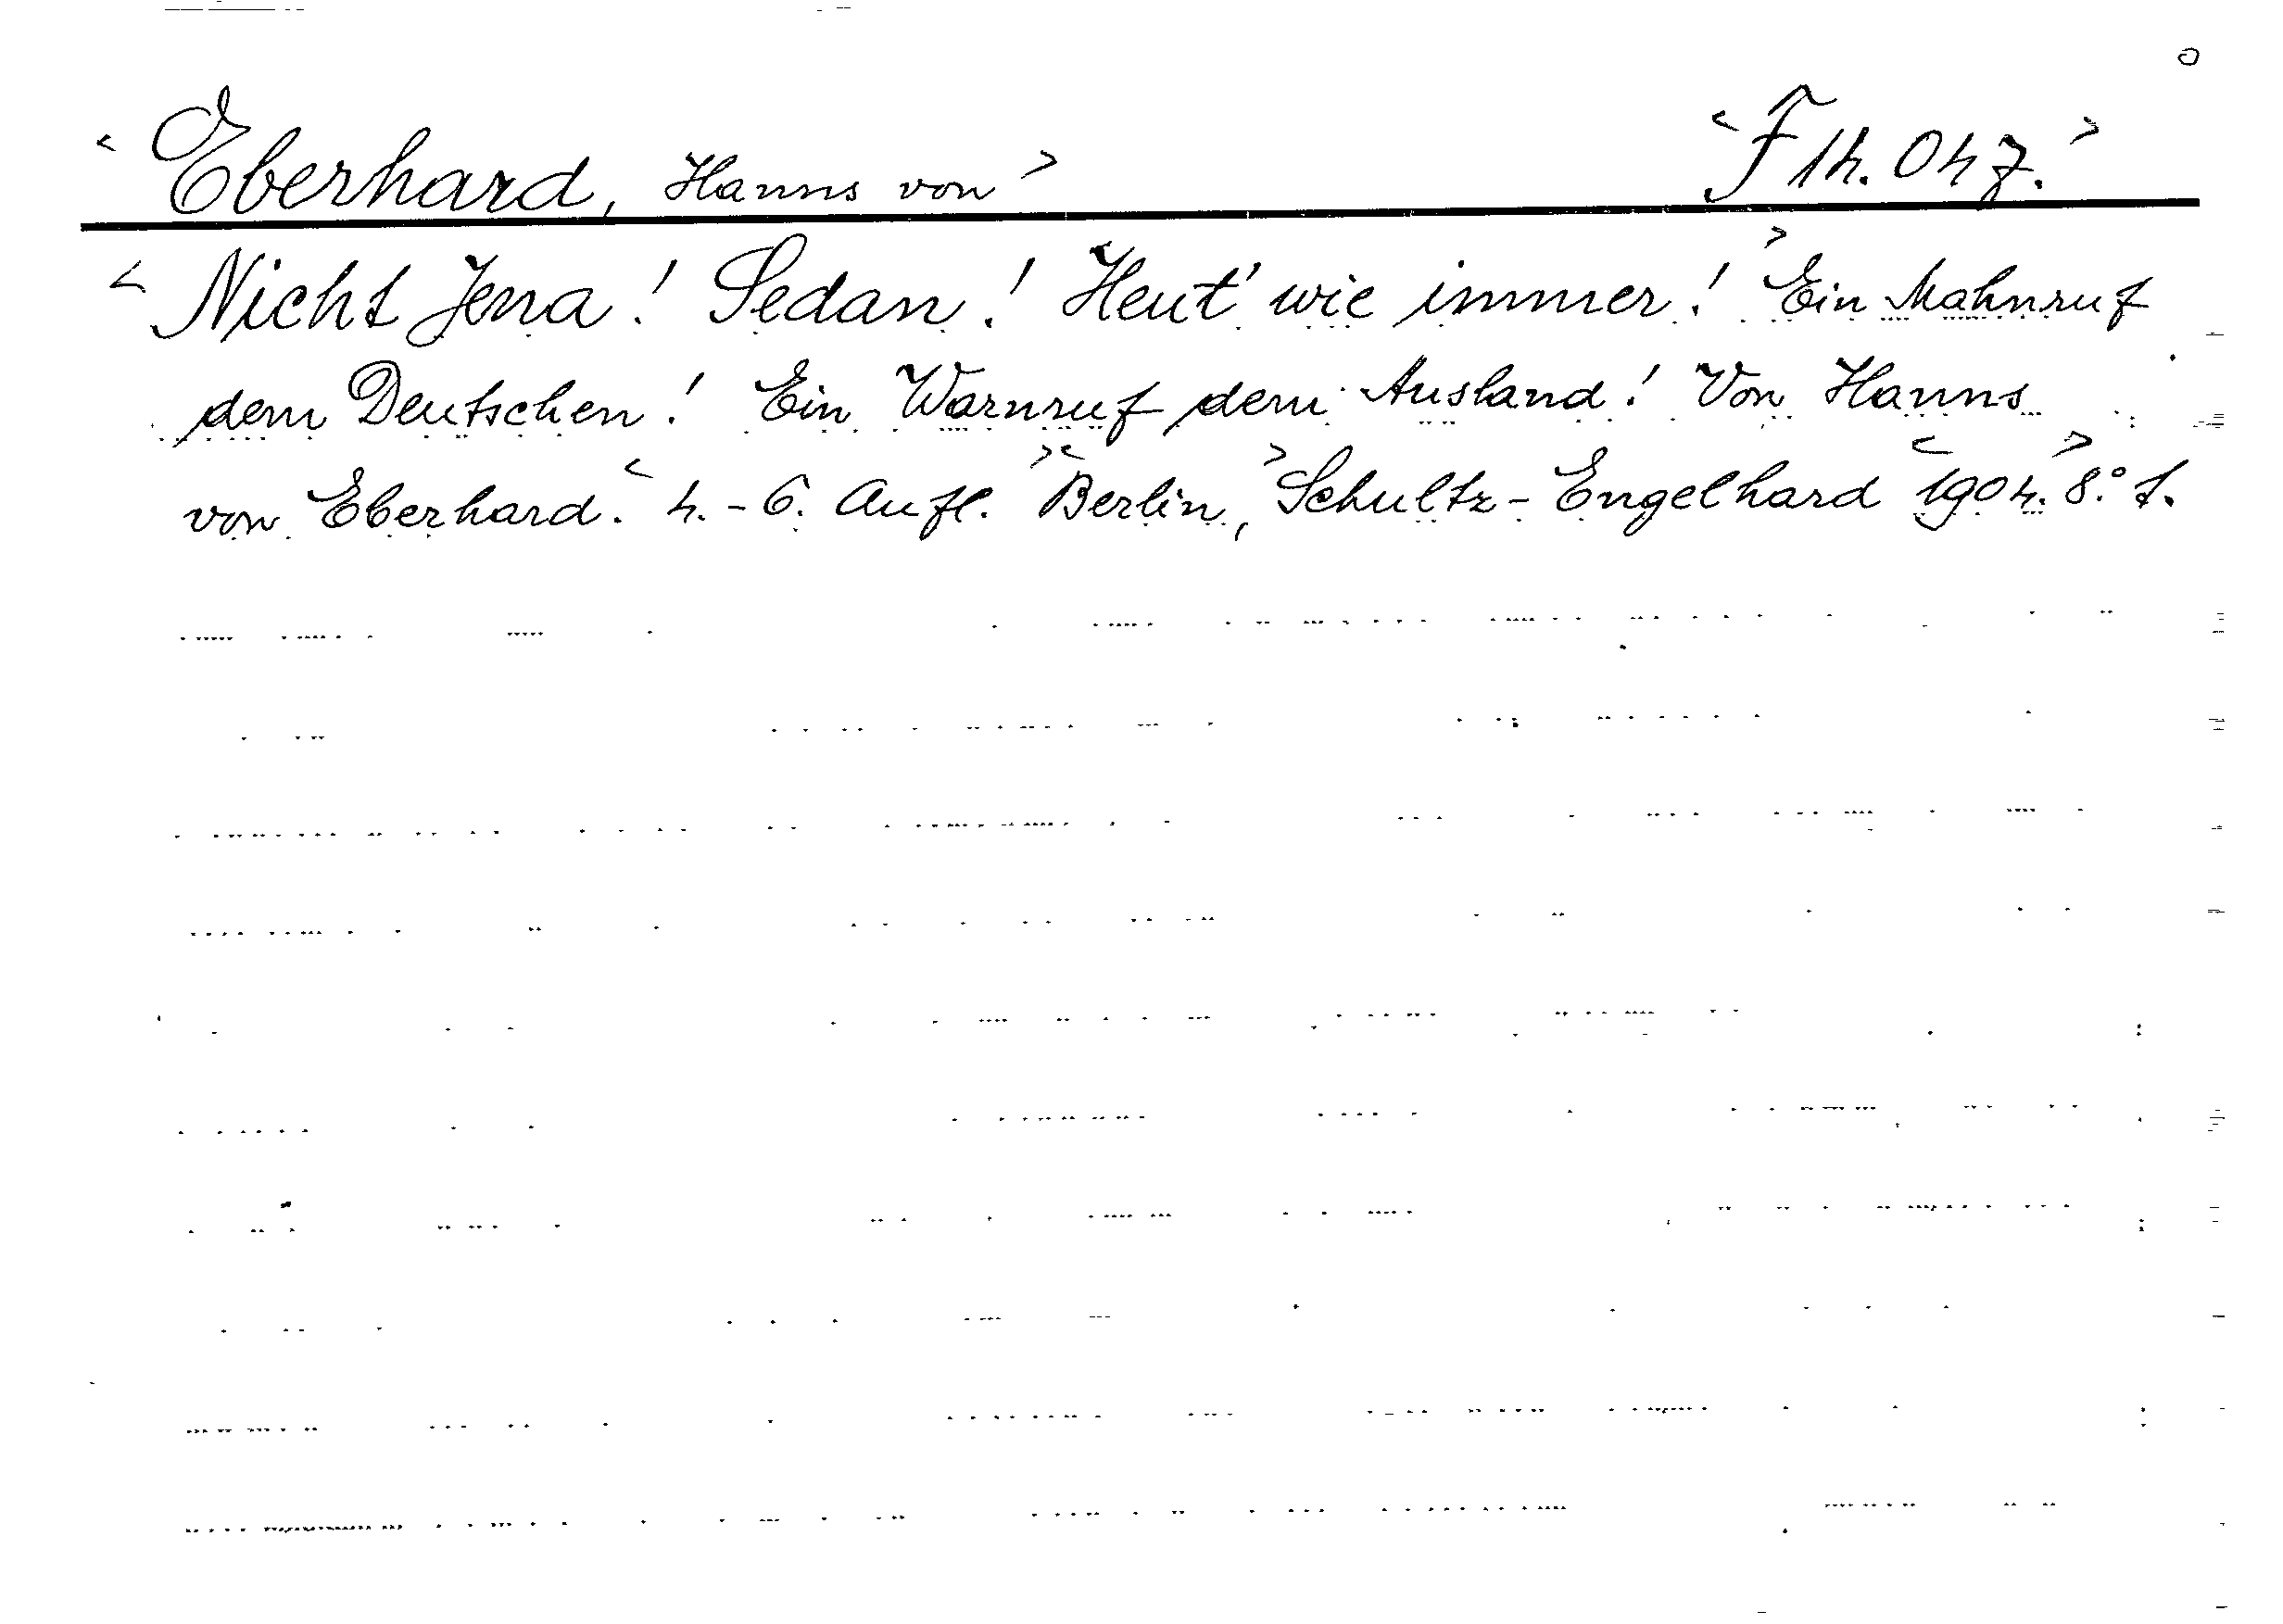 < Eberhard, Hanns von > < F 14.047. >
< Nicht Jena! Sedan! Heut' wie immer! > Ein Mahnruf
dem Deutschen! Ein Warnruf dem Ausland! Von Hanns
von Eberhard. < 4.-6. Aufl. > < Berlin, > Schultz-Engelhard < 1904. > 8.° 1.